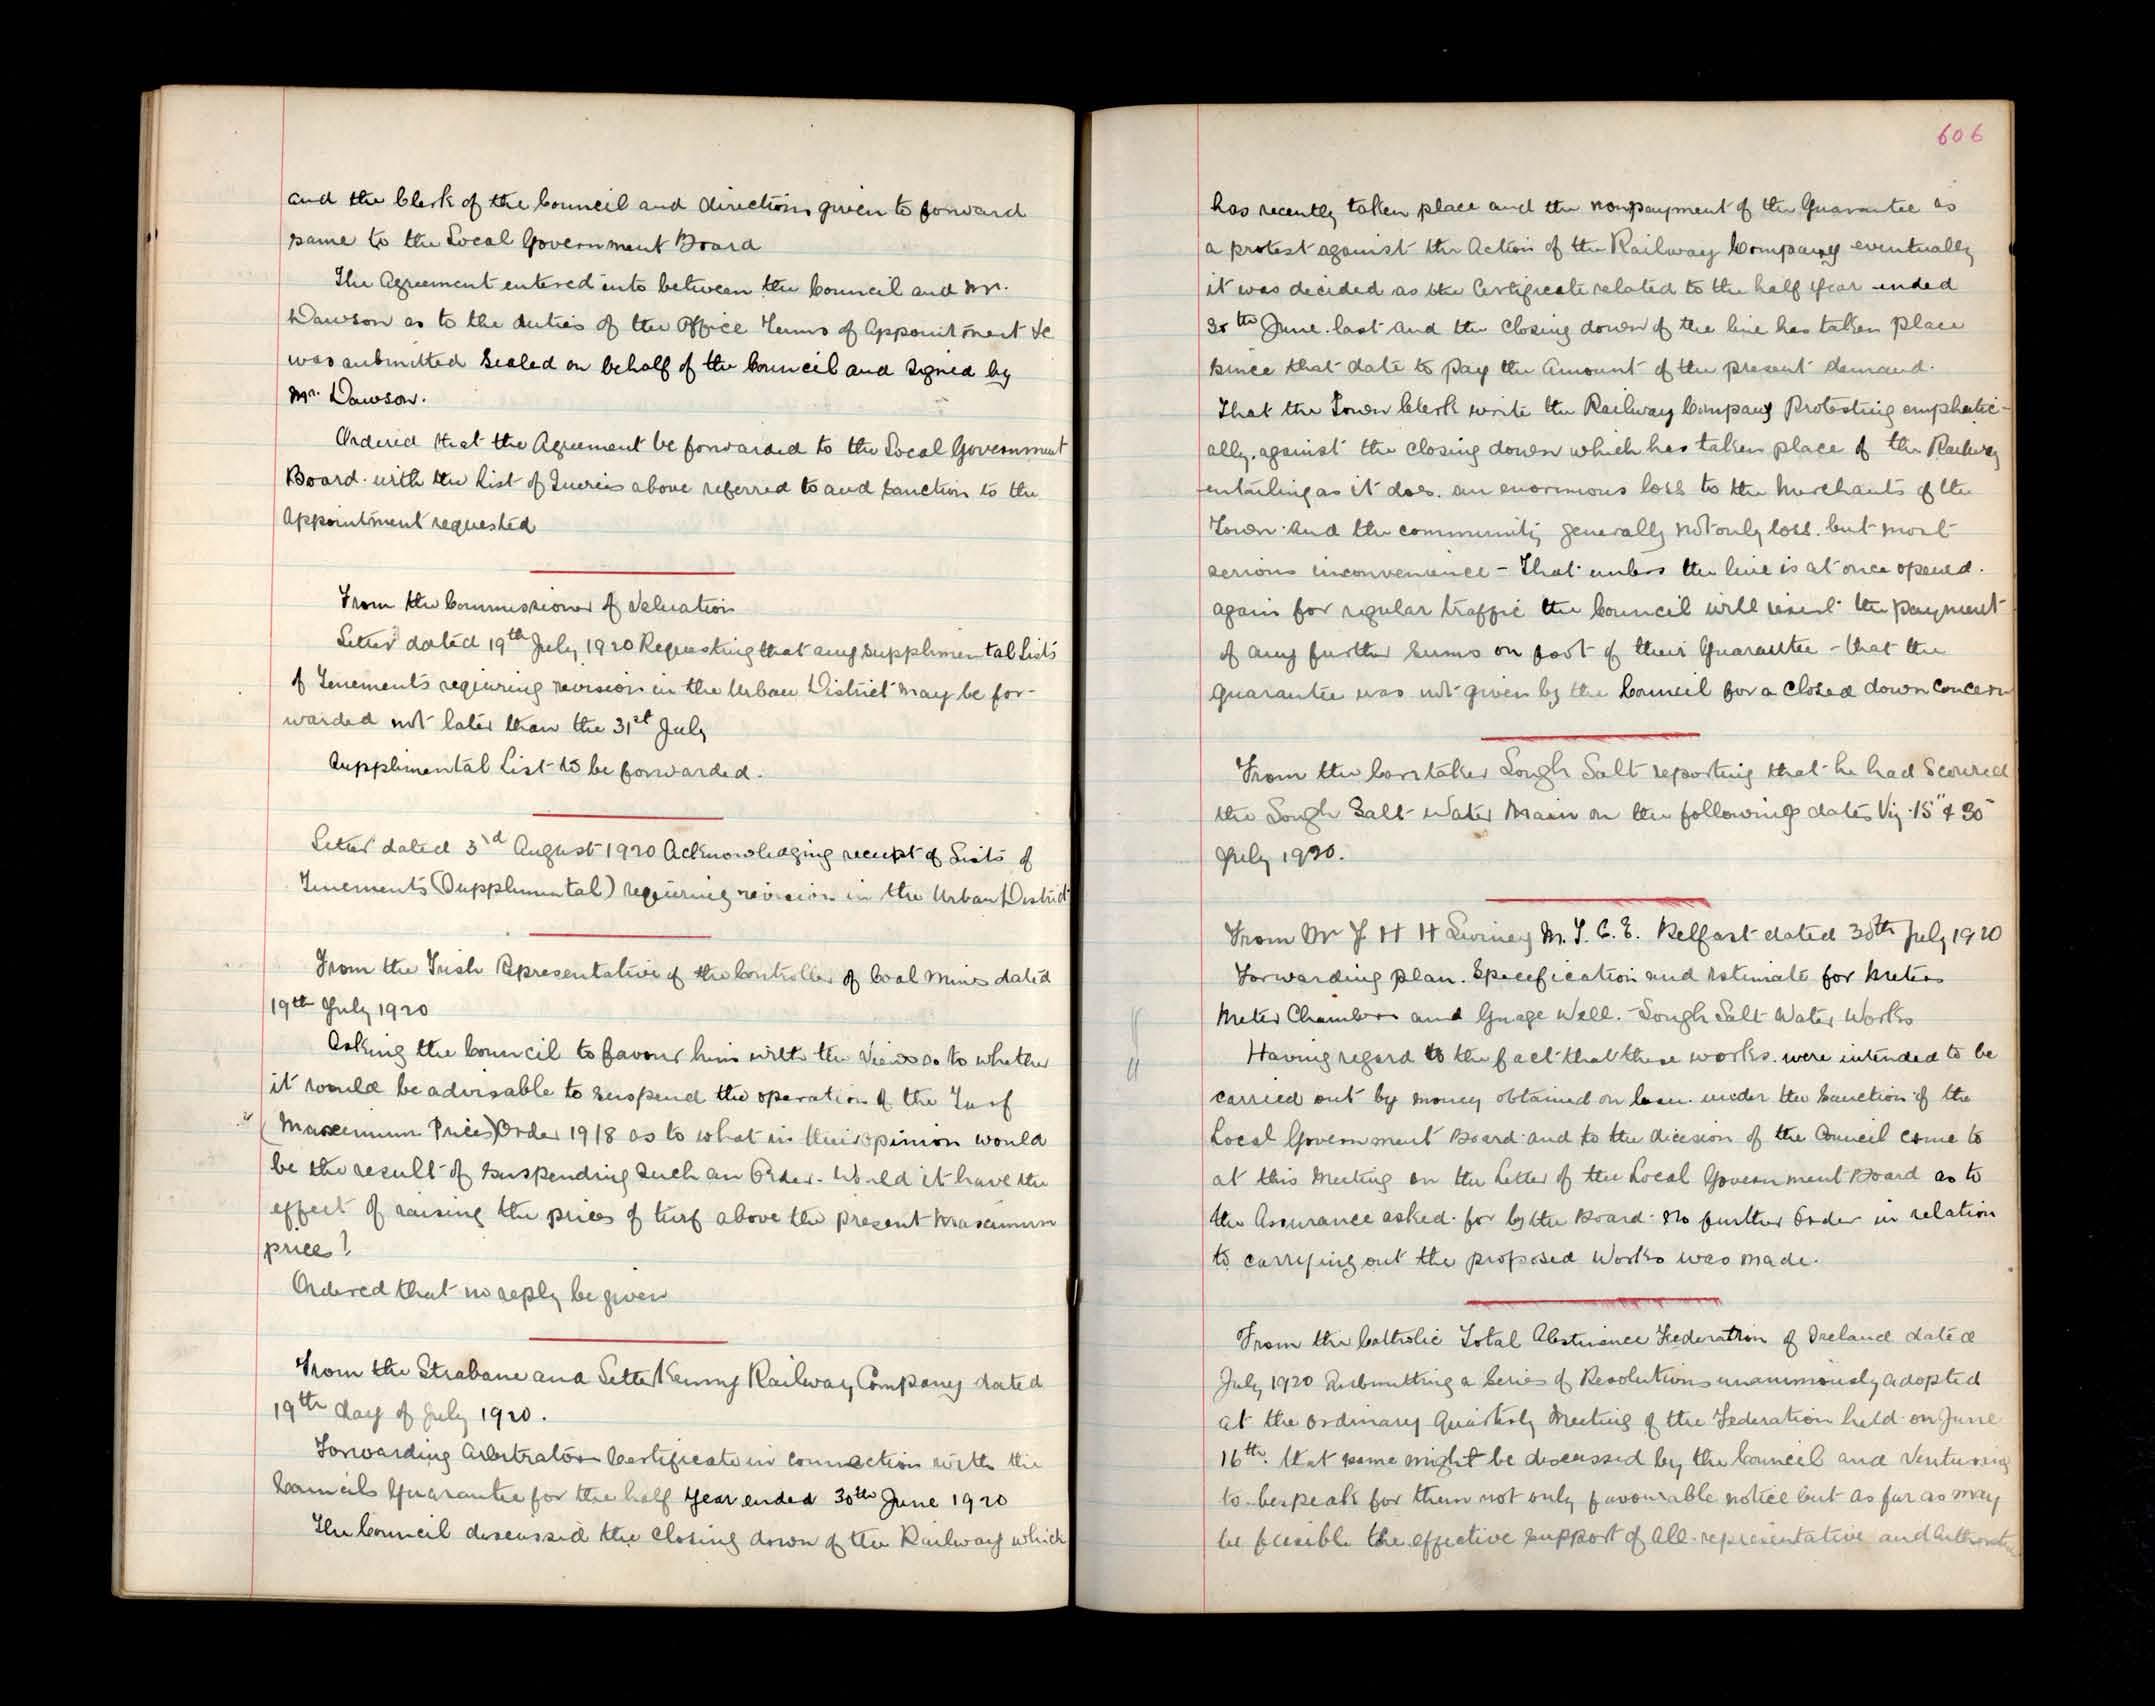 and the Clerk of the Council and directions given to forward
same to the Local Government Board
The Agreement entered into between the Council and Mr.
Dawson as to the duties of the Office Terms of Appointment &c
was submitted Sealed on behalf of the Council and Signed by
Mr. Dawson.
Ordered that the Agreement be forwarded to the Local Government
Board with the List of Queries above referred to and sanction to the
appointment requested
From the Commissioner of Valuation
Letter dated 19th July 1920 Requesting that any Supplimental Lists
of Tenements requiring revision in the Urban District may be for-
warded not later than the 31st July
Supplimental List to be forwarded.
Letter dated 3rd August 1920 Acknowledging receipt of Lists of
Tenements (Supplimental) requiring revision in the Urban District
From the Irish Representative of the Controller of Coal Mines dated
19th July 1920
Asking the Council to favour him with the Views as to whether
it would be advisable to suspend the operation of the Turf
(Maximum Prices) Order 1918 as to what in their opinion would
be the result of suspending such an Order. Would it have the
effect of raising the prices of turf above the present maximum
prices?
Ordered that no reply be given
From the Strabane and LetterKenny Railway Company dated
19th day of July 1920.
Forwarding Arbitrators Certificate in connection with the
Councils Guarantee for the half Year ended 30th June 1920
The Council discussed the closing down of the Railway which
606
has recently taken place and the nonpayment of the Guarantee as
a protest against the Action of the Railway Company eventually
it was decided as the Certificate related to the half year ended
30th June last and the closing down of the line has taken place
since that date to pay the Amount of the present demand.
That the Town Clerk write the Railway Company Protesting emphatic-
ally against the closing down which has taken place of the Railway
entailing as it does an enormous loss to the Merchants of the
Town and the community generally not only loss but most
serious inconvenience - That unless the line is at once opened
again for regular traffic the Council will resist the payment
of any further sums on foot of their Guarantee - that the
guarantee was not given by the Council for a closed down concern
From the Caretaker Lough Salt reporting that he had Scoured
the Lough Salt Water Main on the following dates Viz 15" & 30"
July 1920.
From Mr J H H Swiney M. I. C. E. Belfast dated 30th July 1920
Forwarding plan. Specification and estimate for Meters
Meter Chambers and Guage Well. - Lough Salt Water Works
Having regard to the fact that these works were intended to be
carried out by money obtained on loan under the Sanction of the
Local Government Board and to the dicesion of the Council come to
at this Meeting on the Letter of the Local Government Board as to
the Assurance asked for by the Board no further Order in relation
to carrying out the proposed Works was made.
From the Catholic Total Abstinence Federation of Ireland dated
July 1920 Submitting a Series of Resolutions unanimously adopted
at the ordinary Quarterly Meeting of the Federation held on June
16th. that same might be discussed by the Council and Venturing
to bespeak for them not only favourable notice but as far as may
be feesible the effective support of all representative and